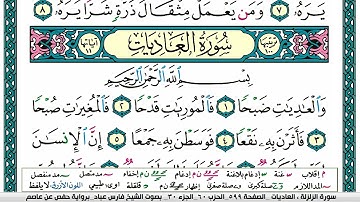 يَرَهُۥ ٧ وَمَن يَعْمَلْ مِثْقَالَ ذَرَّةٍ شَرًّا يَرَهُۥ ٨
ترتيبها ١٠٠ سُورَةُ الْعَادِيَاتِ آياتها ١١
بِسْمِ اللَّهِ الرَّحْمَٰنِ الرَّحِيمِ
وَالْعَادِيَاتِ ضَبْحًا ١ فَالْمُورِيَاتِ قَدْحًا ٢ فَالْمُغِيرَاتِ صُبْحًا
٣ فَأَثَرْنَ بِهِ نَقْعًا ٤ فَوَسَطْنَ بِهِ جَمْعًا ٥ إِنَّ الْإِنسَانَ
سورة الزلزلة ، العاديات الصفحة ٥٩٩ الحزب ٦٠ الجزء ٣٠ بصوت الشيخ فارس عباد برواية حفص عن عاصم